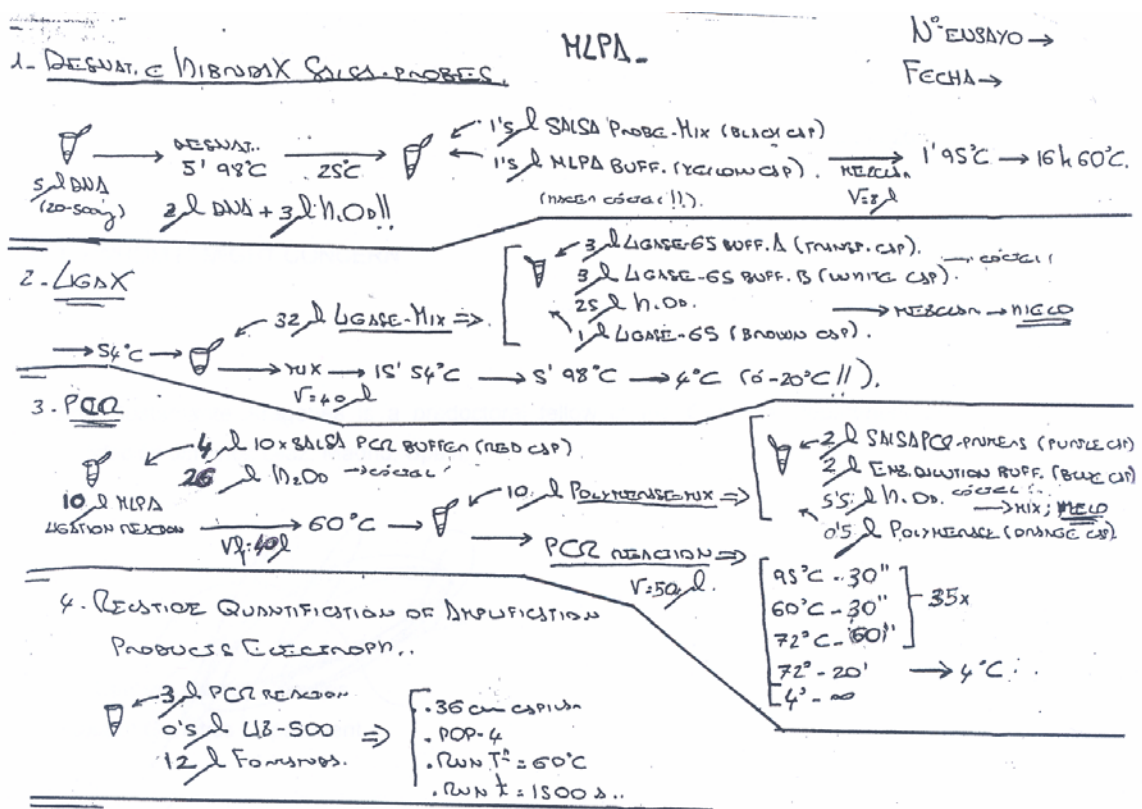 MLPA_
Nº ENSAYO →
FECHA →
1_ DESNAT. E HIBRIDAX SALSA-PROBES.
DESNAT..
5' 98ºC → 25ºC
5 μl DNA
(20-500ng)
2 μl DNA + 3 μl H2Od!!
1'5 μl SALSA PROBE-MIX (BLACK CAP)
1'5 μl MLPA BUFF. (YELLOW CAP).
(HACER CÓCTEL!!).
MEZCLAR
V=8 μl
1' 95ºC → 16h 60ºC.
2_ LIGAX
→ 54ºC →
32 μl LIGASE-MIX ⇒
3 μl LIGASE-65 BUFF. A (TRANSP. CAP).
3 μl LIGASE-65 BUFF. B (WHITE CAP).
→ CÓCTEL!
25 μl H2Od.
1 μl LIGASE-65 (BROWN CAP).
→ MEZCLAR → HIELO
→ MIX → 15' 54ºC → 5' 98ºC → 4ºC (ó -20ºC!!).
V=40 μl
3. PCR
4 μl 10x SALSA PCR BUFFER (RED CAP)
26 μl H2Od → CÓCTEL!
10 μl MLPA
LIGATION REACTION
Vf=40 μl
→ 60ºC →
10 μl POLYMERASE-MIX ⇒
2 μl SALSA PCR-PRIMERS (PURPLE CAP)
2 μl ENZ. DILUTION BUFF. (BLUE CAP)
5'5 μl H2Od. CÓCTEL
→ MIX; HIELO
0'5 μl POLYMERASE (ORANGE CAP)
→ PCR REACTION ⇒
V=50 μl.
95ºC - 30"
60ºC - 30"
72ºC - 60"
35x
72º - 20' → 4ºC
4º - ∞
4. RELATIVE QUANTIFICATION OF AMPLIFICATION
PRODUCTS ELECTROPH..
3 μl PCR REACTION
0'5 μl LIZ-500 ⇒
12 μl FORMAMIDE.
. 36 cm CAPILAR
. POP-4
. RUN Tª = 60ºC
. RUN t = 1500 s..